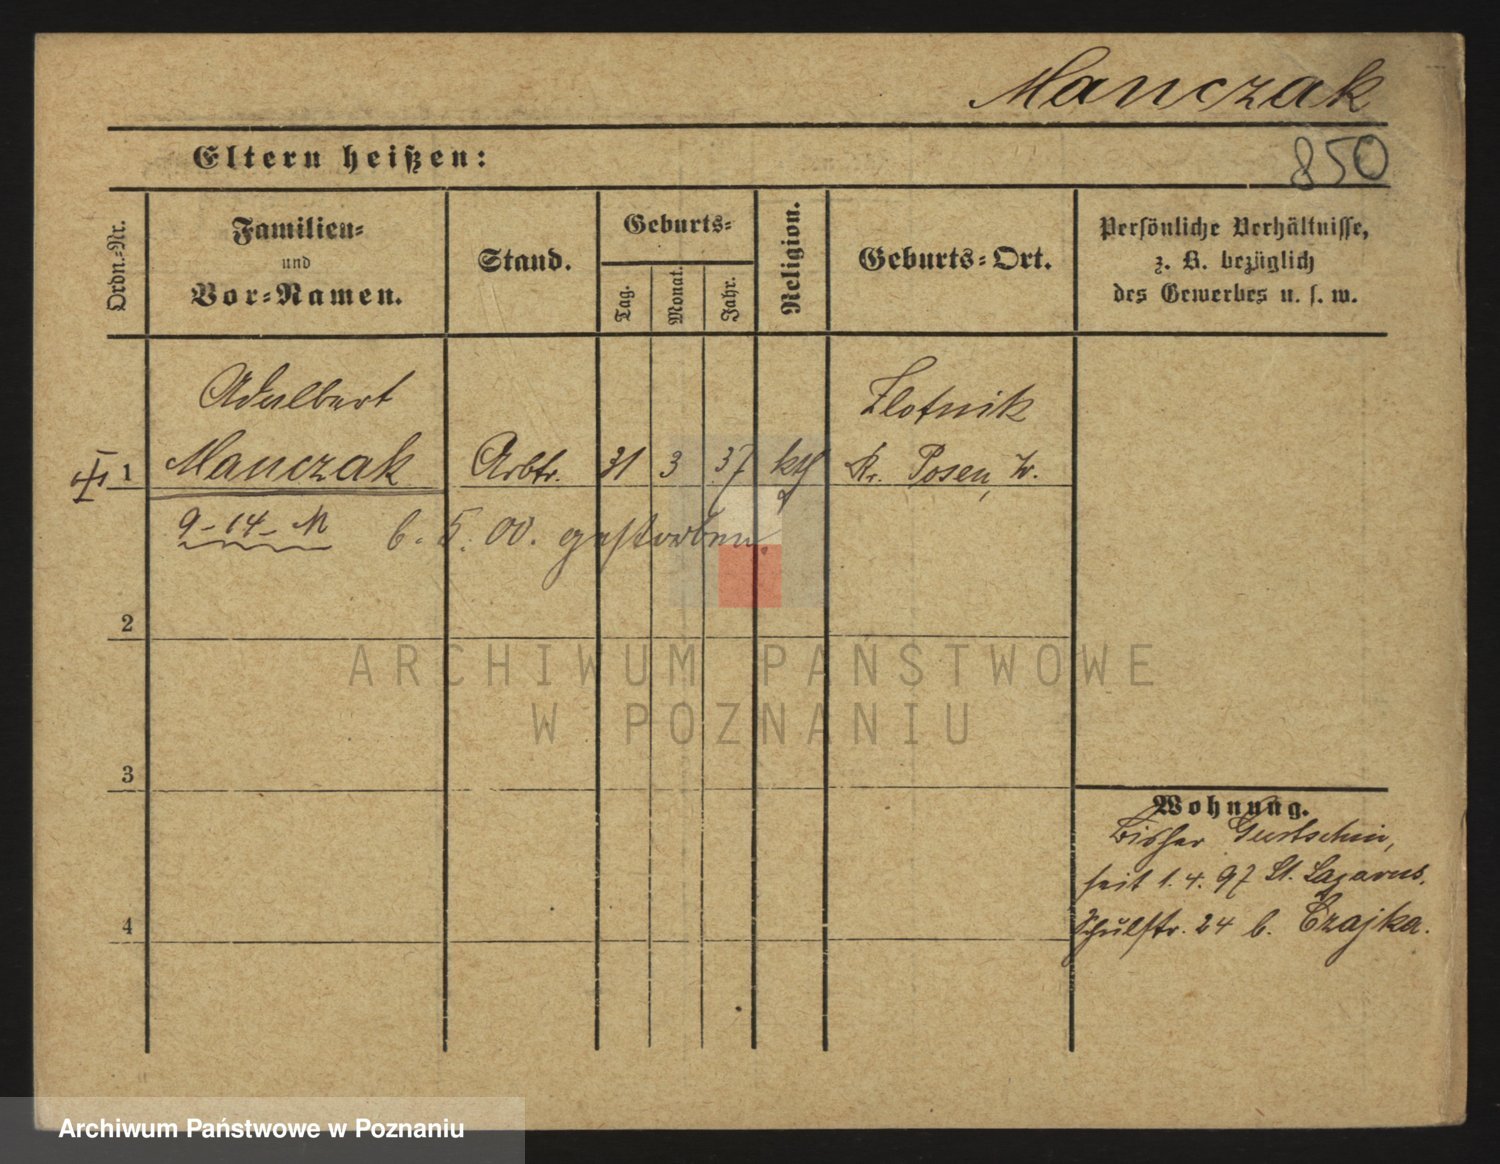 Manczak
Eltern heißen:
850
Ordn.-Nr.
Familien-
und
Vor-Namen.
Stand.
Geburts-
Tag.
Monat.
Jahr.
Religion.
Geburts-Ort.
Persönliche Verhältnisse,
z. B. bezüglich
des Gewerbes u. s. w.
Adalbert
Zlotnik
1 Manczak Arbtr. 31 3 37 kth Kr. Posen, W.
9-14-M 6. 5. 00. gestorben.
2
ARCHIWUM PAŃSTWOWE
W POZNANIU
3
Wohnung.
Bisher Gurtschin,
seit 1.4.97 St. Lazarus.
4
Schulstr. 24 b. Czajka.
Archiwum Państwowe w Poznaniu